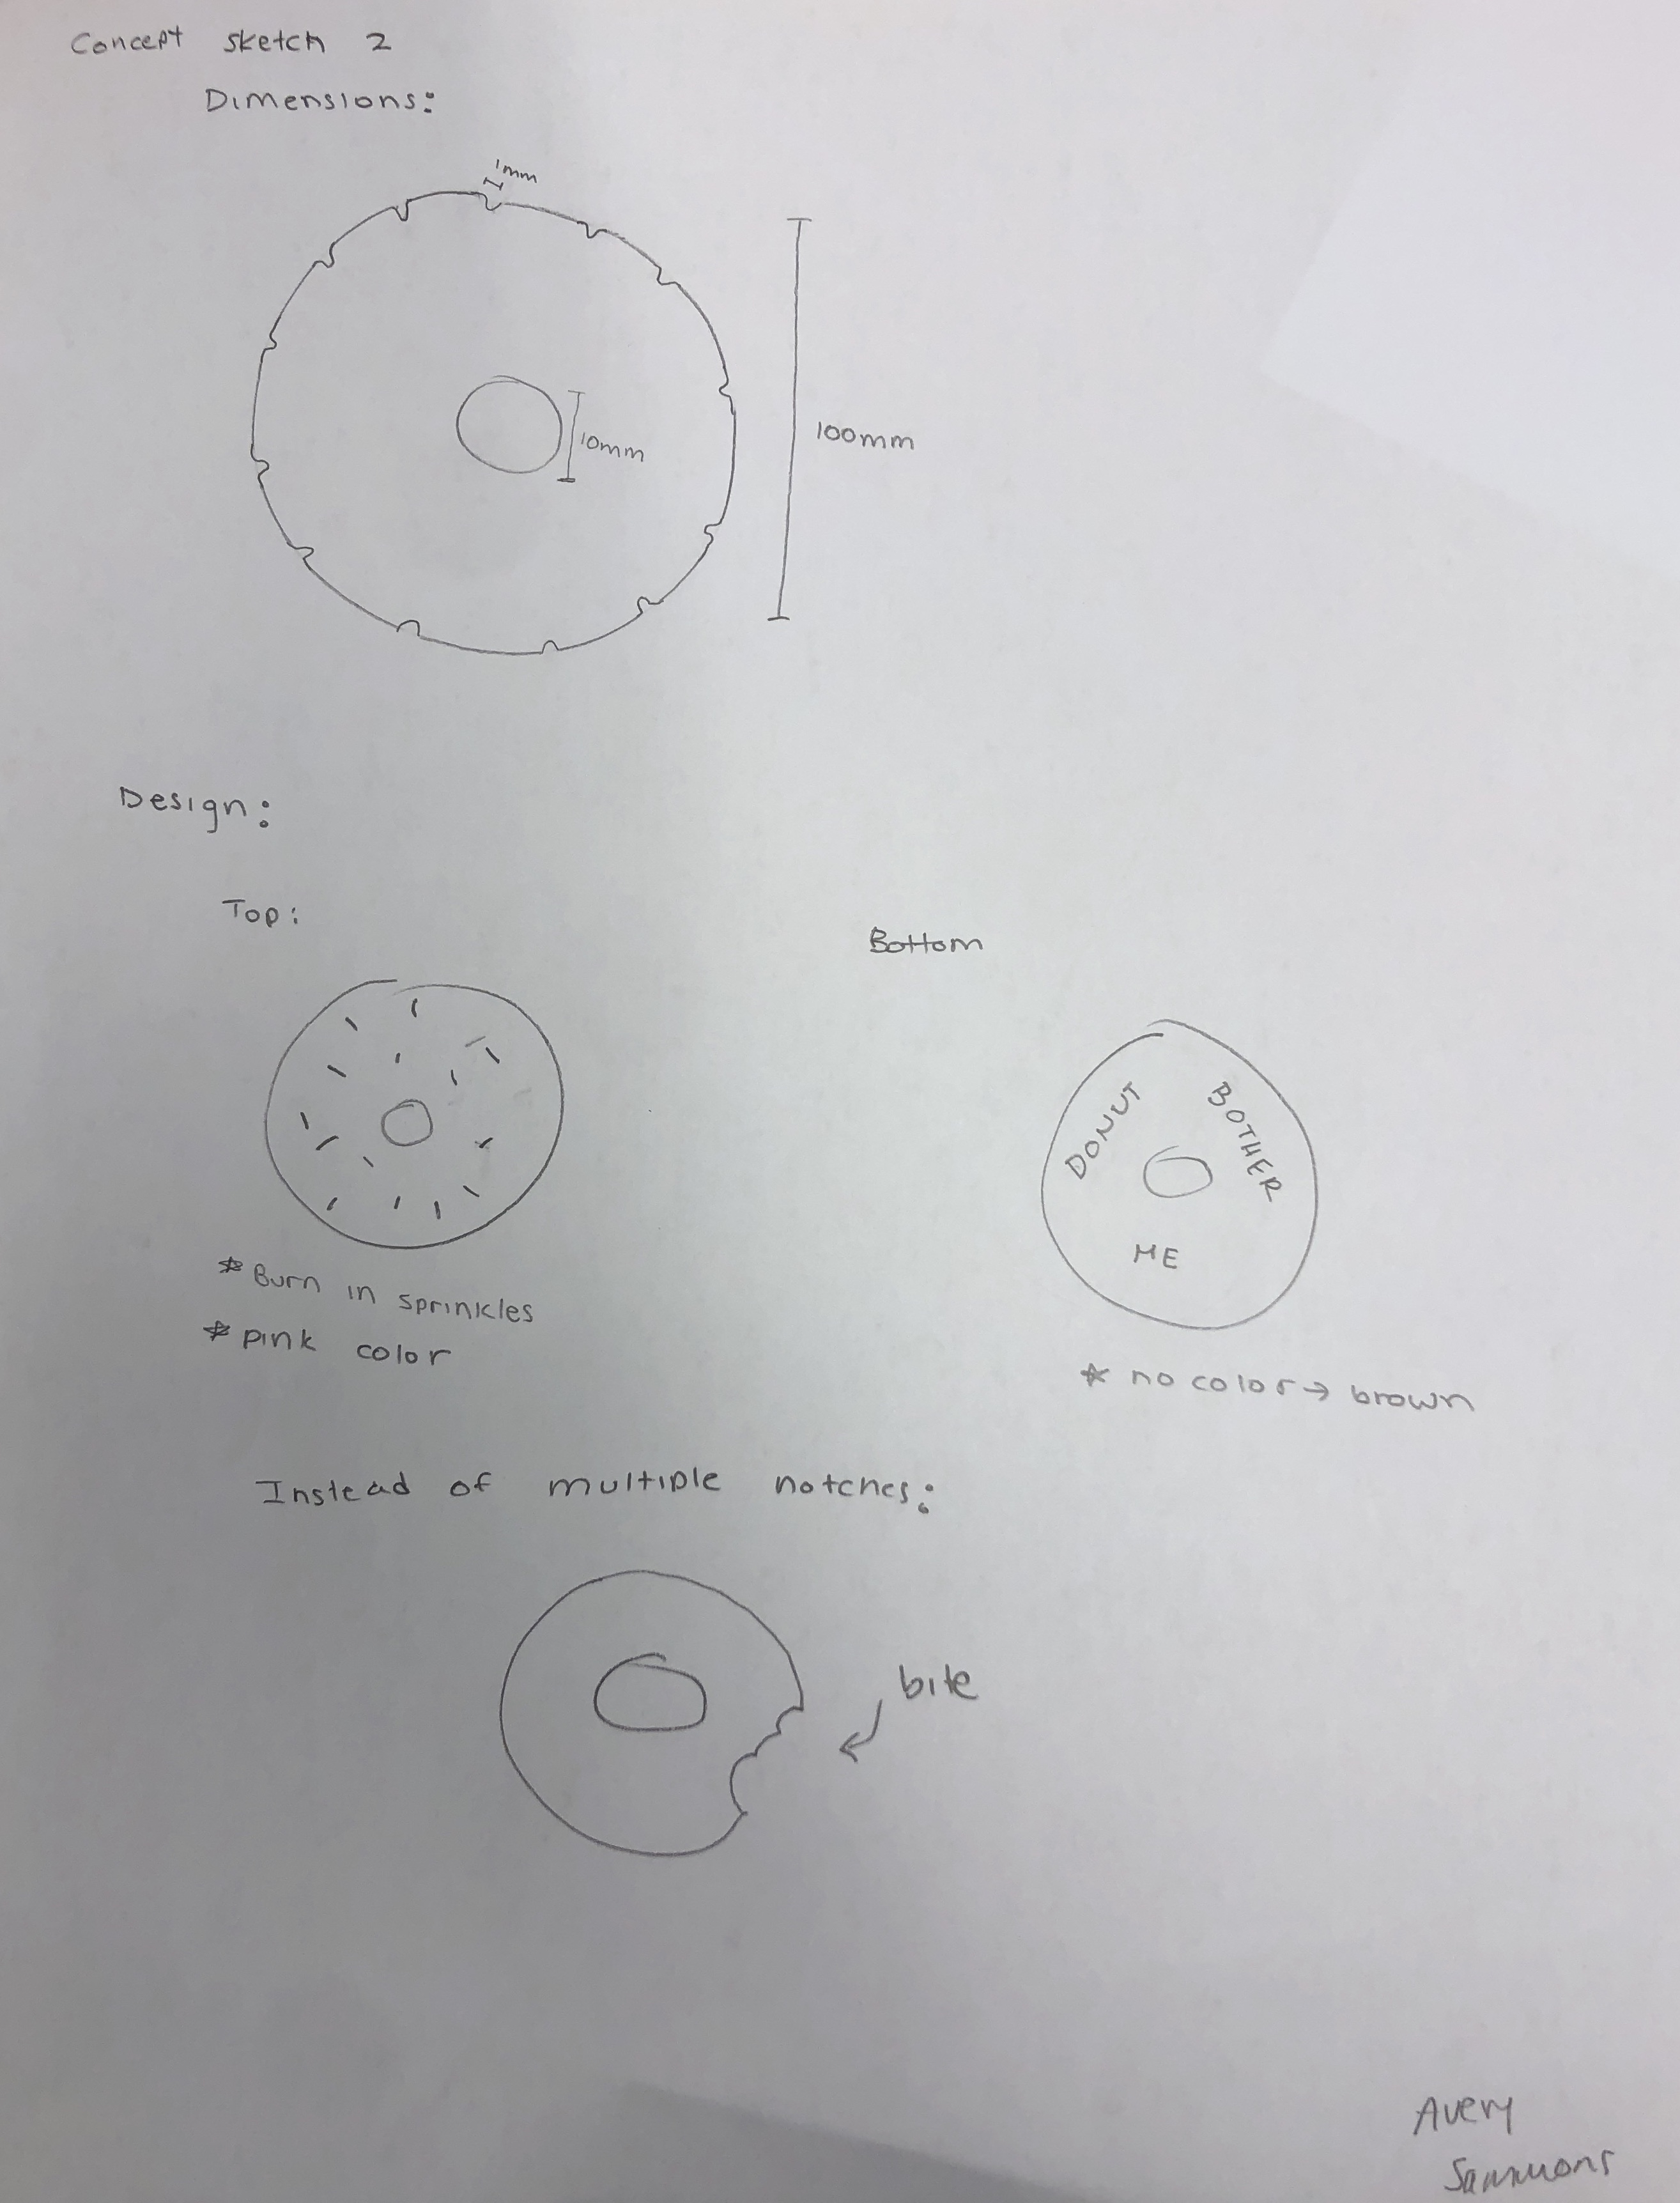 Concept sketch 2
Dimensions:
1mm
10mm
100mm
Design:
Top:
Bottom
DONUT
BOTHER
ME
* Burn in sprinkles
* pink color
* no color → brown
Instead of multiple notches:
bite
Avery
Sammons